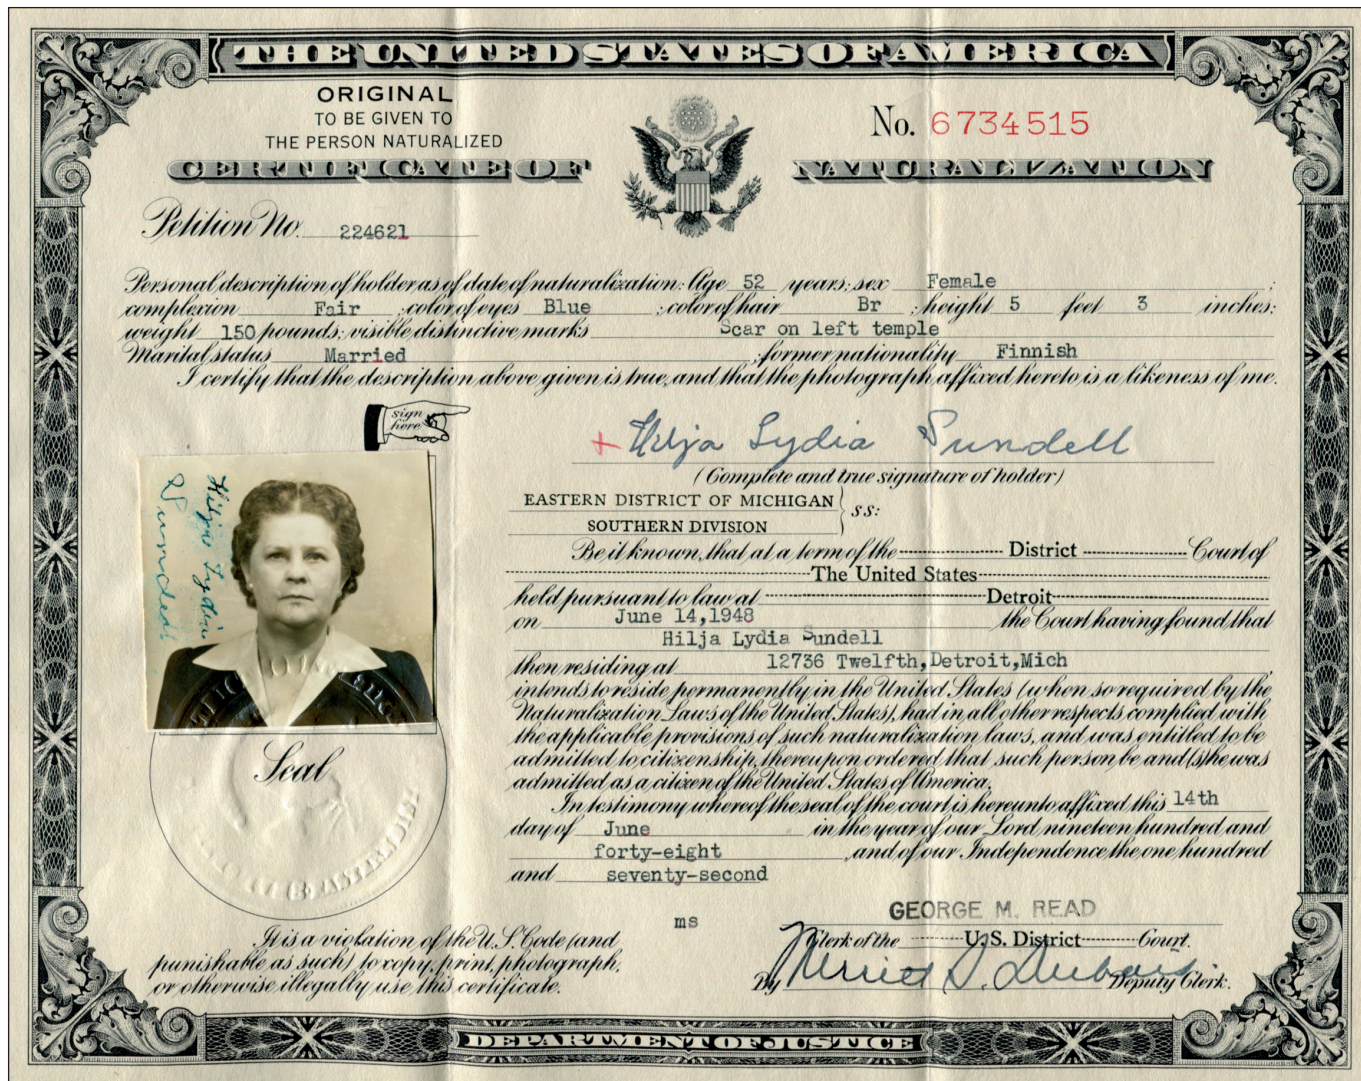 THE UNITED STATES OF AMERICA
ORIGINAL
TO BE GIVEN TO
THE PERSON NATURALIZED
No. 6734515
CERTIFICATE OF NATURALIZATION
Petition No. 224621
Personal description of holder as of date of naturalization: Age 52 years; sex Female ;
complexion Fair ; color of eyes Blue ; color of hair Br ; height 5 feet 3 inches;
weight 150 pounds; visible distinctive marks Scar on left temple
Marital status Married ; former nationality Finnish
I certify that the description above given is true, and that the photograph affixed hereto is a likeness of me.
sign
here
+ Hilja Lydia Sundell
(Complete and true signature of holder)
Hilja Lydia
Sundell
EASTERN DISTRICT OF MICHIGAN
SOUTHERN DIVISION
} ss:
Be it known, that at a term of the District Court of
The United States
held pursuant to law at Detroit
on June 14,1948 the Court having found that
Hilja Lydia Sundell
then residing at 12736 Twelfth,Detroit,Mich
intends to reside permanently in the United States (when so required by the
Naturalization Laws of the United States), had in all other respects complied with
the applicable provisions of such naturalization laws, and was entitled to be
admitted to citizenship, thereupon ordered that such person be and (s)he was
admitted as a citizen of the United States of America.
In testimony whereof the seal of the court is hereunto affixed this 14th
day of June in the year of our Lord nineteen hundred and
forty-eight , and of our Independence the one hundred
and seventy-second
Seal
ms
GEORGE M. READ
Clerk of the U.S. District Court.
By Deputy Clerk.
It is a violation of the U.S. Code (and
punishable as such) to copy, print, photograph,
or otherwise illegally use this certificate.
DEPARTMENT OF JUSTICE